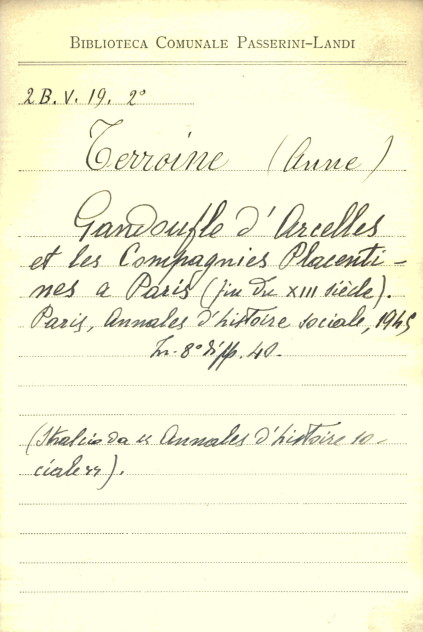 BIBLIOTECA COMUNALE PASSERINI-LANDI
2 B. V. 19. 2°
Terroine (Anne)
Gandoufle d'Arcelles
et les Compagnies Placenti-
nes a Paris (fin du XIII siècle).
Paris, Annales d'histoire sociale, 1945
In-8° di pp. 40.
(Stralcio da "Annales d'histoire so-
ciale").